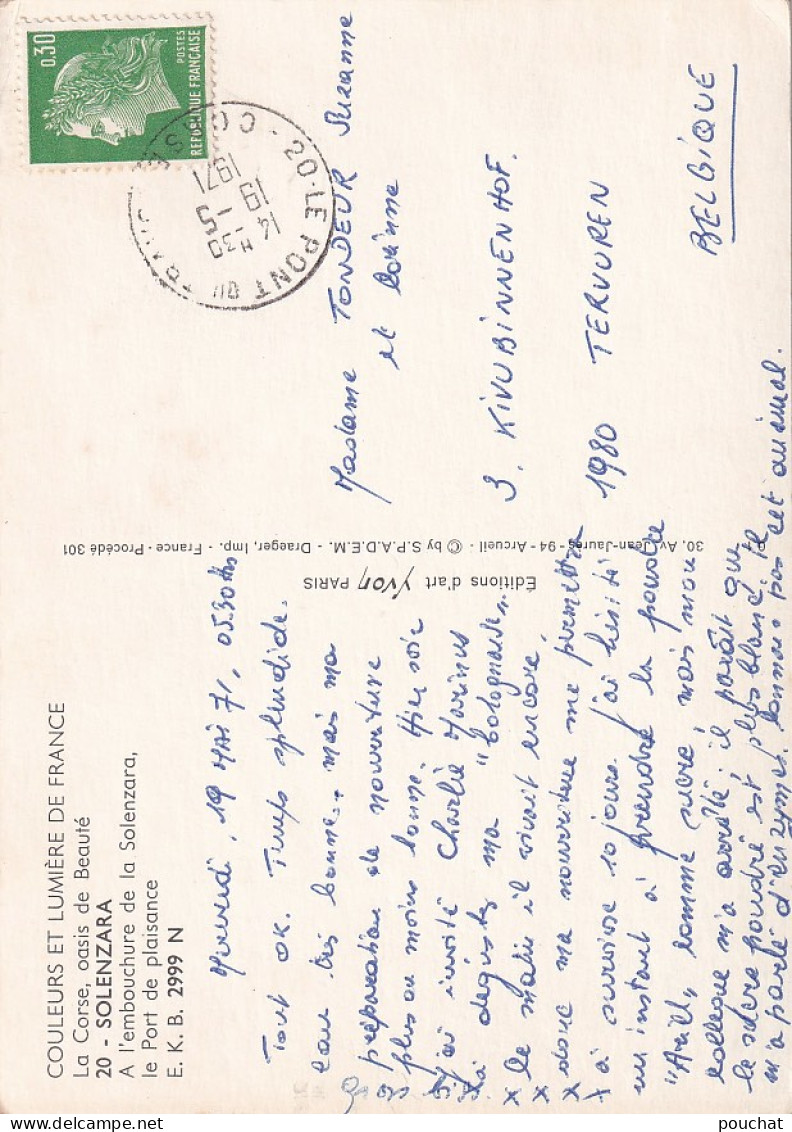 COULEURS ET LUMIÈRE DE FRANCE
La Corse, oasis de Beauté
20 - SOLENZARA
A l'embouchure de la Solenzara,
le Port de plaisance
E. K. B. 2999 N
Mercredi, 19 MAI 71, 05.30 hs
Tout OK. Temps splendide.
Eau très bonne. Mais ma
préparation de nourriture
plus ou moins bonne. Hier soir
j'ai invité Charlie Marinus
à déguster ma "bolognaise"
le matin il vivait encore,
donc ma nourriture me permettra
à survivre 10 jours. J'ai hésité
un instant à prendre la poudre
"Ariel" comme sucre, mais mon
collègue m'a arrêté: il paraît que
le sucre poudré est plus blanc. Il
m'a parlé d'enzymes. Connais pas cet animal.
Éditions d'art Yvon PARIS
30, Av. Jean-Jaurès - 94 - Arcueil - © by S.P.A.D.E.M. - Draeger, Imp. - France - Procédé 301
0.30
POSTES
REPUBLIQUE FRANÇAISE
20 - LE PONT DU
14 H 30
19 - 5
1971
Madame TONDEUR Suzanne
et Corinne
3. KIVUBINNENHOF.
1980 TERVUREN
BELGIQUE
pouchat